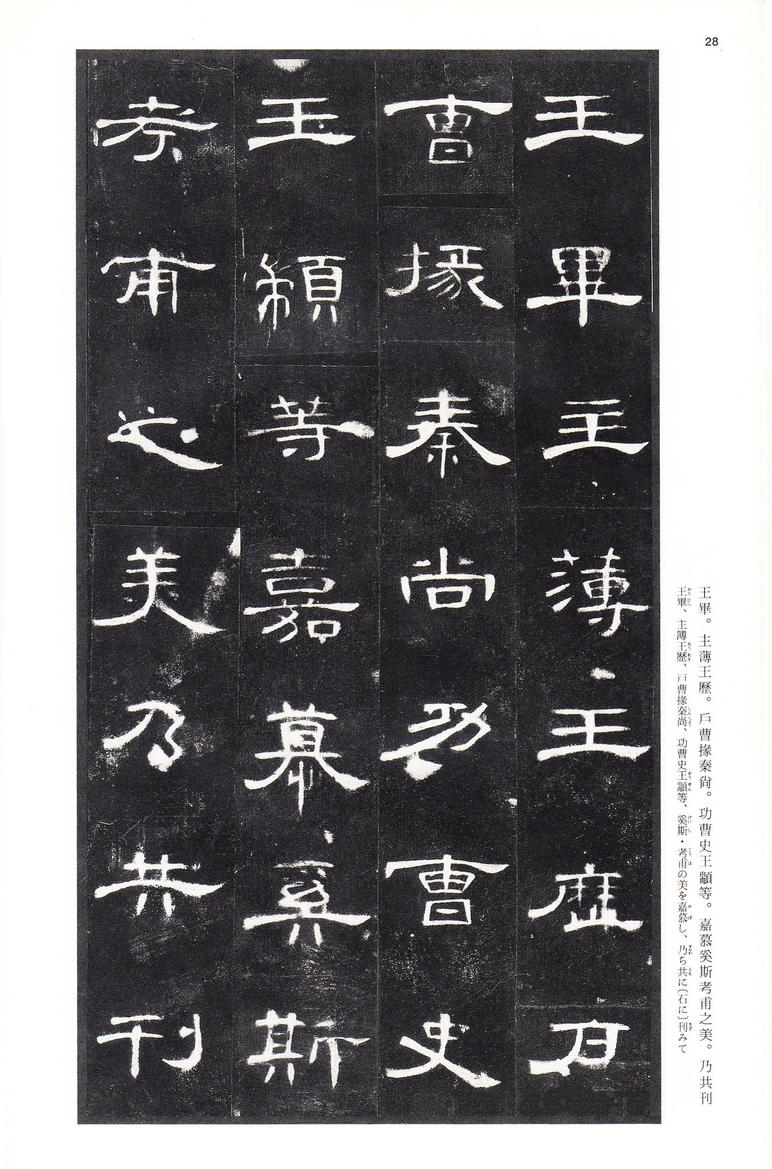 28
王畢主薄王歷戶
曹掾秦尚功曹史
王顓等嘉慕奚斯
考甫之美乃共刊
王畢。主薄王歷。戶曹掾秦尙。功曹史王顓等。嘉慕奚斯考甫之美。乃共刊
王畢、主簿王歷、戶曹掾秦尚、功曹史王顓等、奚斯・考甫の美を嘉慕し、乃ち共に〔石に〕刊みて